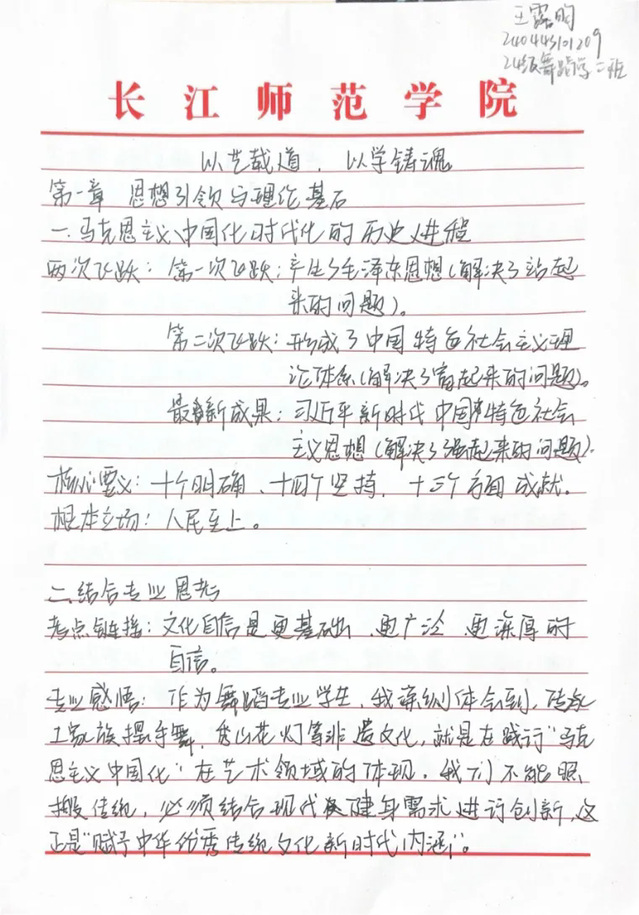 王露昀
240443101209
24级舞蹈学二班
长江师范学院
以艺载道，以学铸魂
第一章 思想引领与理论基石
一.马克思主义中国化时代化的历史进程
两次飞跃：第一次飞跃：产生了毛泽东思想（解决了站起
来的问题）。
第二次飞跃：形成了中国特色社会主义理
论体系（解决了富起来的问题）。
最新成果：习近平新时代中国特色社会
主义思想（解决了强起来的问题）.
核心要义：十个明确、十四个坚持、十三个方面成就.
根本立场：人民至上。
二.结合专业思考
考点链接：文化自信是更基础、更广泛、更深厚的
自信。
专业感悟：作为舞蹈专业学生，我深刻体会到，传承
土家族摆手舞，秀山花灯等非遗文化，就是在践行“马克
思主义中国化”在艺术领域的体现.我们不能照
搬传统，必须结合现代健身需求进行创新，这
正是“赋予中华优秀传统文化新时代内涵”。